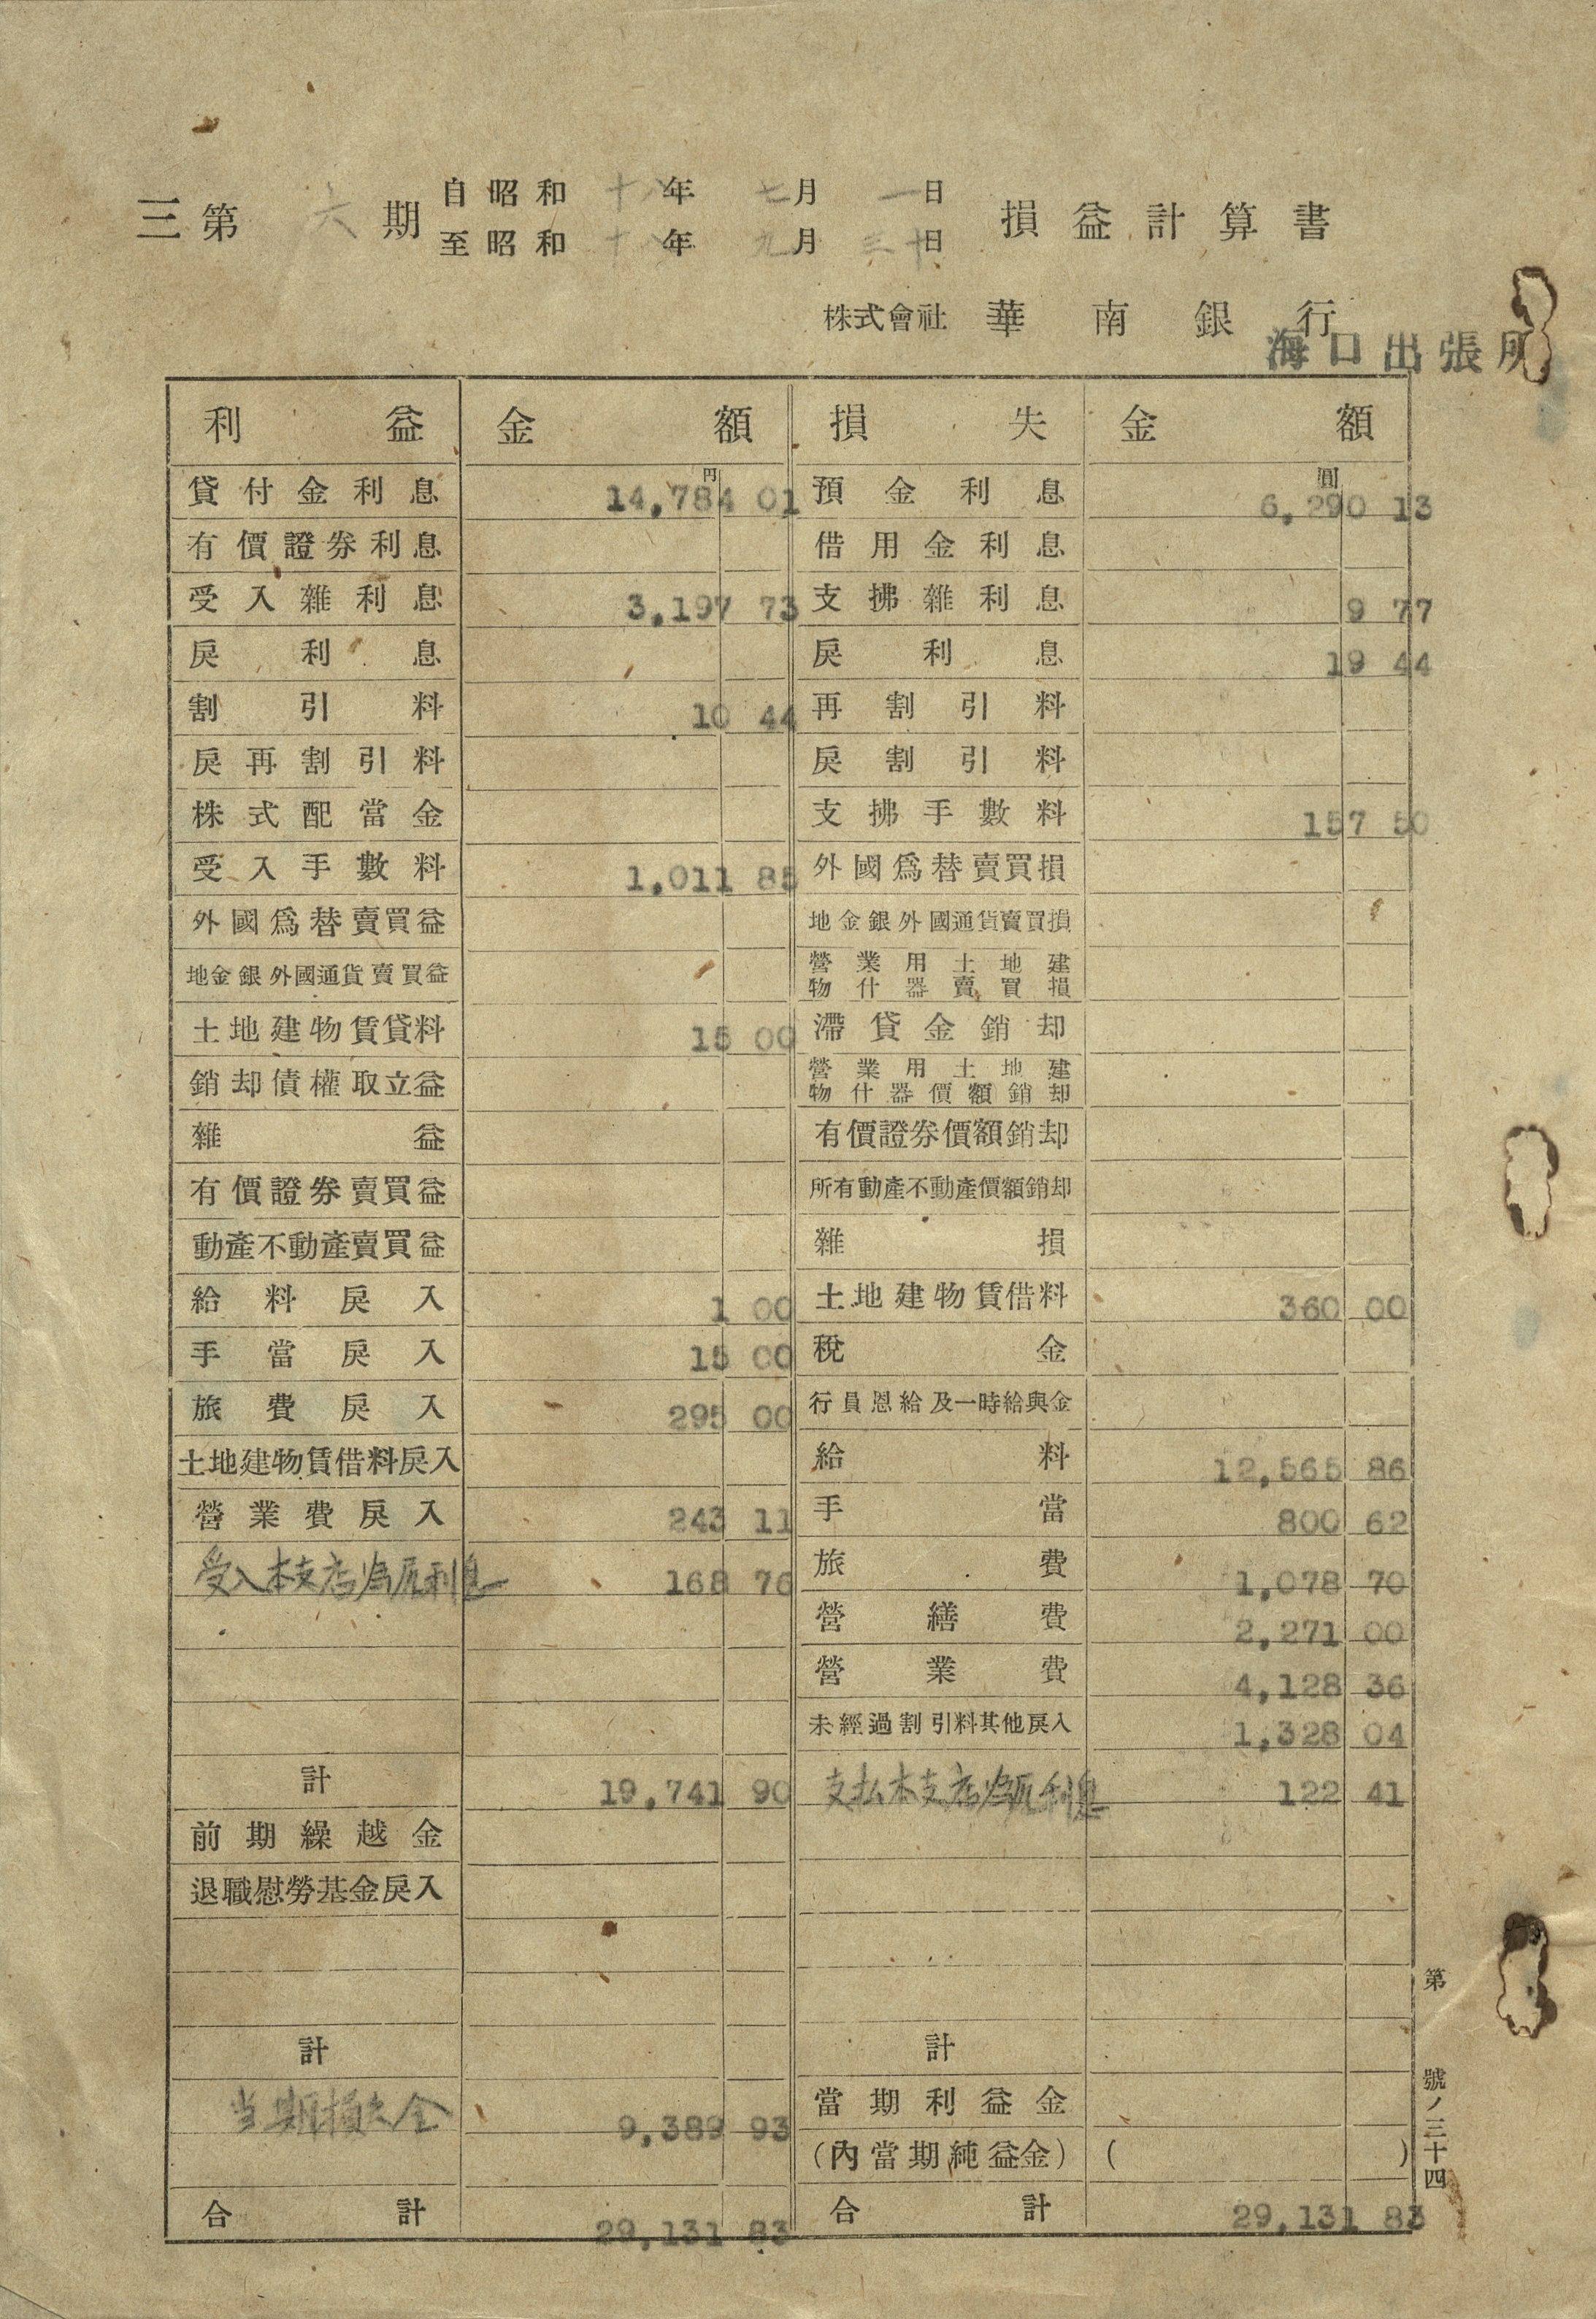 三第 六 期 自昭和 十八年 七月 一日 損益計算書
至昭和 十八年 九月 三十日
株式會社 華南銀行
海口出張所
利益 金額 損失 金額
円 圓
貸付金利息 14,784 01 預金利息 6,290 13
有價證券利息 借用金利息
受入雜利息 3,197 73 支拂雜利息 9 77
戾利息 戾利息 19 44
割引料 10 44 再割引料
戾再割引料 戾割引料
株式配當金 支拂手數料 157 50
受入手數料 1,011 85 外國爲替賣買損
外國爲替賣買益 地金銀外國通貨賣買損
地金銀外國通貨賣買益 營業用土地建物什器賣買損
土地建物賃貸料 15 00 滯貸金銷却
銷却債權取立益 營業用土地建物什器價額銷却
雜益 有價證券價額銷却
有價證券賣買益 所有動產不動產價額銷却
動產不動產賣買益 雜損
給料戾入 1 00 土地建物賃借料 360 00
手當戾入 15 00 稅金
旅費戾入 295 00 行員恩給及一時給與金
土地建物賃借料戾入 給料 12,565 86
營業費戾入 243 11 手當 800 62
受入本支店為戻利息 168 76 旅費 1,078 70
營繕費 2,271 00
營業費 4,128 36
未經過割引料其他戾入 1,328 04
計 19,741 90 支払本支店為戻利息 122 41
前期繰越金
退職慰勞基金戾入
計 計
当期損失金 9,389 93 當期利益金
(內當期純益金) ( )
合計 29,131 83 合計 29,131 83
第 號ノ三十四